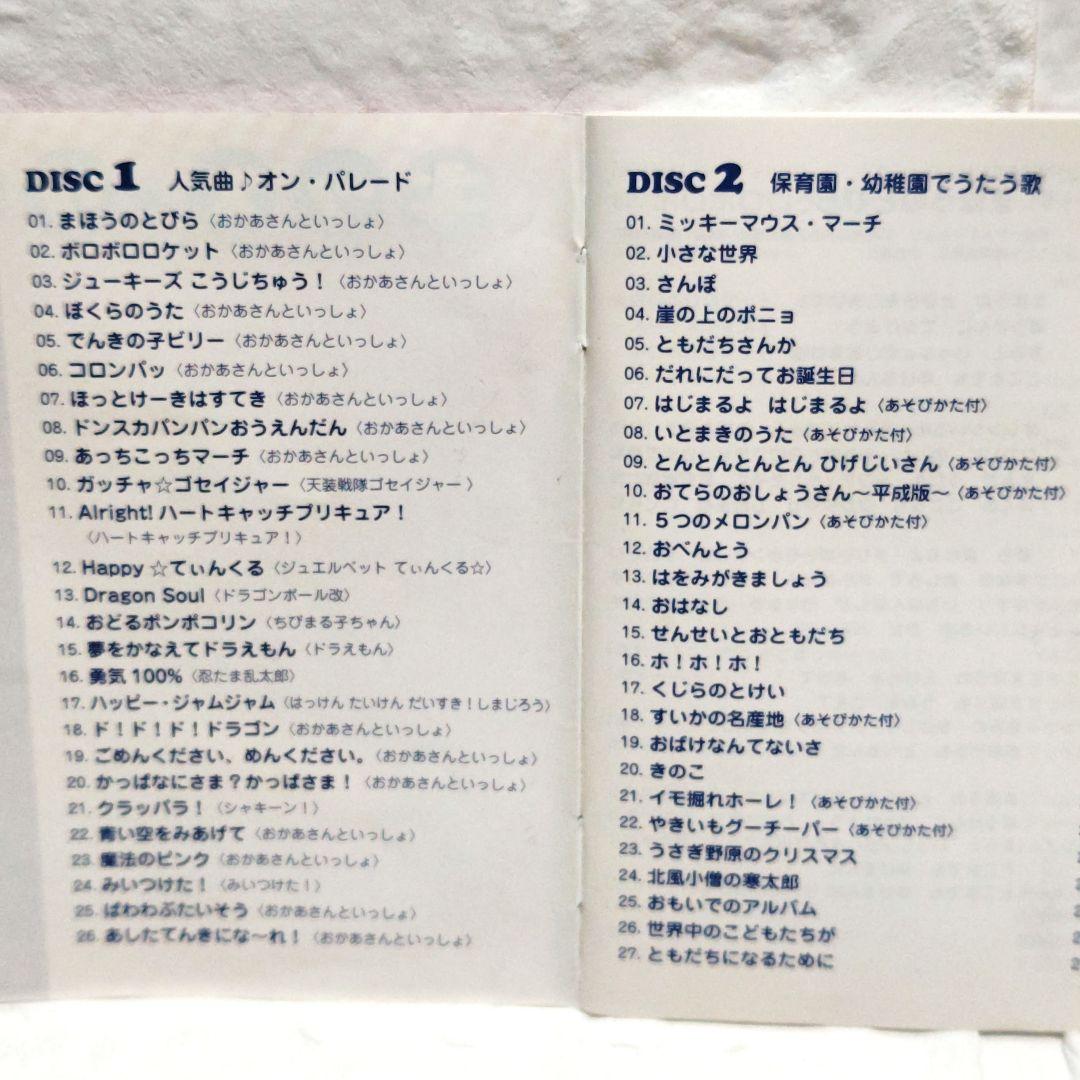 DISC 1 人気曲♪オン・パレード
01. まほうのとびら〈おかあさんといっしょ〉
02. ボロボロロケット〈おかあさんといっしょ〉
03. ジューキーズ こうじちゅう!〈おかあさんといっしょ〉
04. ぼくらのうた〈おかあさんといっしょ〉
05. でんきの子ビリー〈おかあさんといっしょ〉
06. コロンパッ〈おかあさんといっしょ〉
07. ほっとけーきはすてき〈おかあさんといっしょ〉
08. ドンスカパンパンおうえんだん〈おかあさんといっしょ〉
09. あっちこっちマーチ〈おかあさんといっしょ〉
10. ガッチャ☆ゴセイジャー〈天装戦隊ゴセイジャー〉
11. Alright! ハートキャッチプリキュア!
〈ハートキャッチプリキュア!〉
12. Happy ☆てぃんくる〈ジュエルペット てぃんくる☆〉
13. Dragon Soul〈ドラゴンボール改〉
14. おどるポンポコリン〈ちびまる子ちゃん〉
15. 夢をかなえてドラえもん〈ドラえもん〉
16. 勇気100%〈忍たま乱太郎〉
17. ハッピー・ジャムジャム〈はっけん たいけん だいすき!しまじろう〉
18. ド!ド!ド!ドラゴン〈おかあさんといっしょ〉
19. ごめんください、めんください。〈おかあさんといっしょ〉
20. かっぱなにさま?かっぱさま!〈おかあさんといっしょ〉
21. クラッパラ!〈シャキーン!〉
22. 青い空をみあげて〈おかあさんといっしょ〉
23. 魔法のピンク〈おかあさんといっしょ〉
24. みいつけた!〈みいつけた!〉
25. ぱわわぷたいそう〈おかあさんといっしょ〉
26. あしたてんきにな~れ!〈おかあさんといっしょ〉
DISC 2 保育園・幼稚園でうたう歌
01. ミッキーマウス・マーチ
02. 小さな世界
03. さんぽ
04. 崖の上のポニョ
05. ともだちさんか
06. だれにだってお誕生日
07. はじまるよ はじまるよ〈あそびかた付〉
08. いとまきのうた〈あそびかた付〉
09. とんとんとんとん ひげじいさん〈あそびかた付〉
10. おてらのおしょうさん~平成版~〈あそびかた付〉
11. 5つのメロンパン〈あそびかた付〉
12. おべんとう
13. はをみがきましょう
14. おはなし
15. せんせいとおともだち
16. ホ!ホ!ホ!
17. くじらのとけい
18. すいかの名産地〈あそびかた付〉
19. おばけなんてないさ
20. きのこ
21. イモ掘れホーレ!〈あそびかた付〉
22. やきいもグーチーパー〈あそびかた付〉
23. うさぎ野原のクリスマス
24. 北風小僧の寒太郎
25. おもいでのアルバム
26. 世界中のこどもたちが
27. ともだちになるために